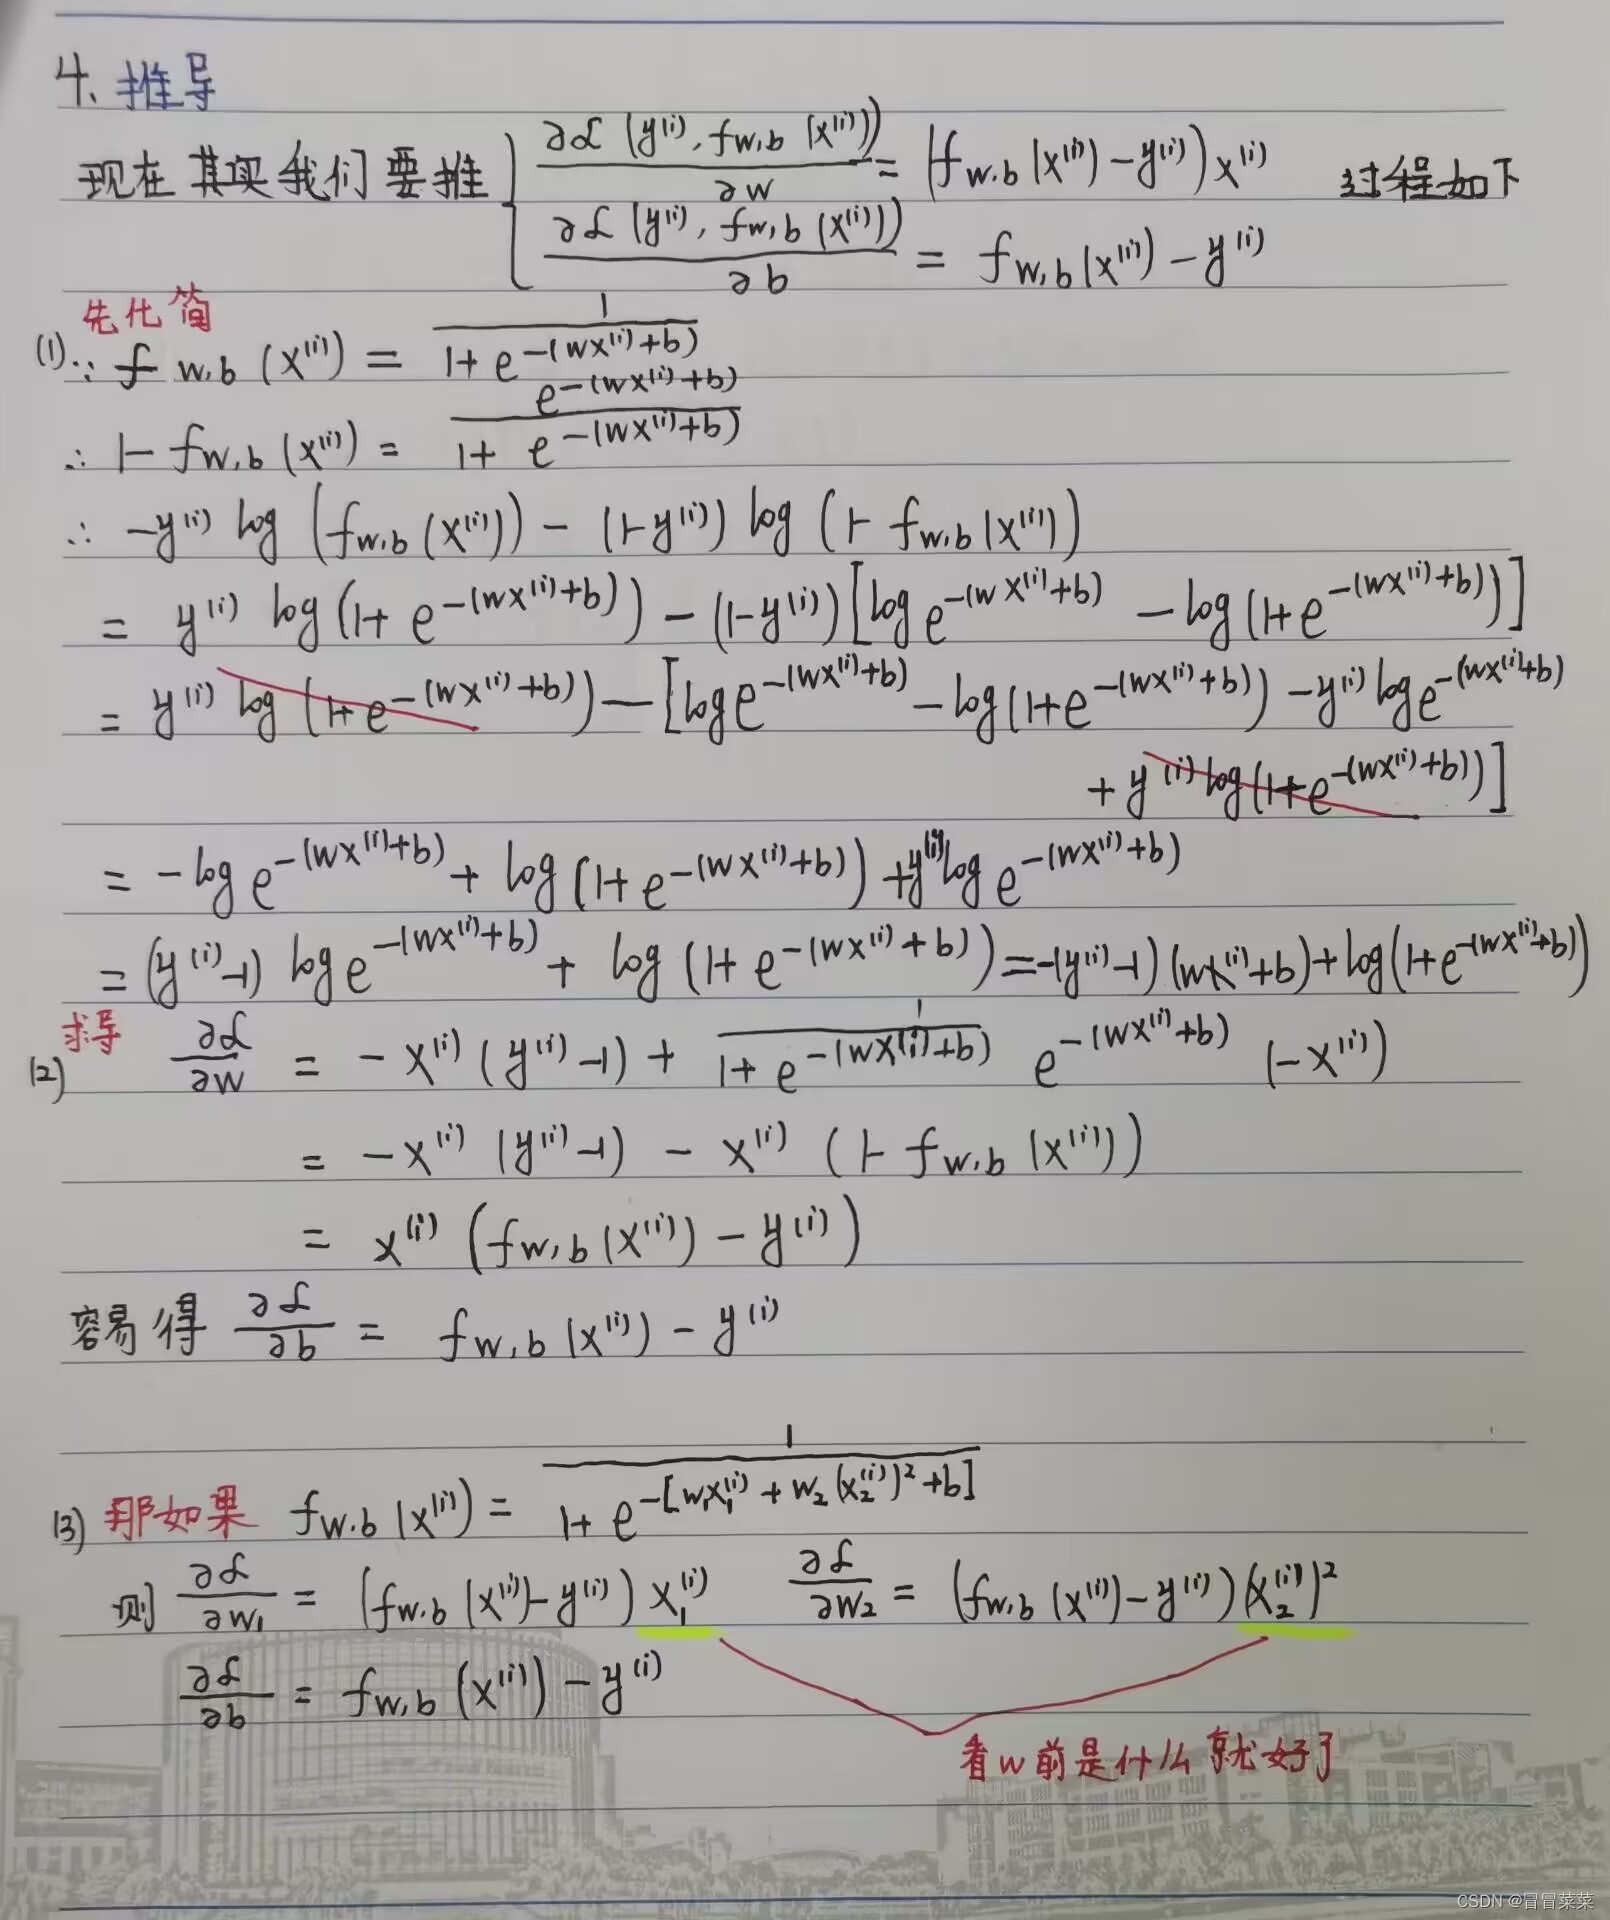 4、推导
现在其实我们要推 { ∂L(y⁽ⁱ⁾, f_{w,b}(x⁽ⁱ⁾))/∂w = (f_{w,b}(x⁽ⁱ⁾) - y⁽ⁱ⁾)x⁽ⁱ⁾ 过程如下
∂L(y⁽ⁱ⁾, f_{w,b}(x⁽ⁱ⁾))/∂b = f_{w,b}(x⁽ⁱ⁾) - y⁽ⁱ⁾
先化简
(1) ∵ f_{w,b}(x⁽ⁱ⁾) = 1/(1+e^{-(wx⁽ⁱ⁾+b)})
∴ 1-f_{w,b}(x⁽ⁱ⁾) = e^{-(wx⁽ⁱ⁾+b)}/(1+e^{-(wx⁽ⁱ⁾+b)})
∴ -y⁽ⁱ⁾ log(f_{w,b}(x⁽ⁱ⁾)) - (1-y⁽ⁱ⁾) log(1-f_{w,b}(x⁽ⁱ⁾)
= y⁽ⁱ⁾ log(1+e^{-(wx⁽ⁱ⁾+b)}) - (1-y⁽ⁱ⁾)[log e^{-(wx⁽ⁱ⁾+b)} - log(1+e^{-(wx⁽ⁱ⁾+b)})]
= y⁽ⁱ⁾ log(1+e^{-(wx⁽ⁱ⁾+b)}) - [log e^{-(wx⁽ⁱ⁾+b)} - log(1+e^{-(wx⁽ⁱ⁾+b)}) - y⁽ⁱ⁾ log e^{-(wx⁽ⁱ⁾+b)}
+ y⁽ⁱ⁾ log(1+e^{-(wx⁽ⁱ⁾+b)})]
= -log e^{-(wx⁽ⁱ⁾+b)} + log(1+e^{-(wx⁽ⁱ⁾+b)}) + y⁽ⁱ⁾ log e^{-(wx⁽ⁱ⁾+b)}
= (y⁽ⁱ⁾-1) log e^{-(wx⁽ⁱ⁾+b)} + log(1+e^{-(wx⁽ⁱ⁾+b)}) = -(y⁽ⁱ⁾-1)(wx⁽ⁱ⁾+b) + log(1+e^{-(wx⁽ⁱ⁾+b)})
求导
(2) ∂L/∂w = -x⁽ⁱ⁾(y⁽ⁱ⁾-1) + 1/(1+e^{-(wx⁽ⁱ⁾+b)}) e^{-(wx⁽ⁱ⁾+b)} (-x⁽ⁱ⁾)
= -x⁽ⁱ⁾(y⁽ⁱ⁾-1) - x⁽ⁱ⁾(1-f_{w,b}(x⁽ⁱ⁾))
= x⁽ⁱ⁾(f_{w,b}(x⁽ⁱ⁾) - y⁽ⁱ⁾)
容易得 ∂L/∂b = f_{w,b}(x⁽ⁱ⁾) - y⁽ⁱ⁾
(3) 那如果 f_{w,b}(x⁽ⁱ⁾) = 1/(1+e^{-[w₁x₁⁽ⁱ⁾+w₂(x₂⁽ⁱ⁾)²+b]})
则 ∂L/∂w₁ = (f_{w,b}(x⁽ⁱ⁾)-y⁽ⁱ⁾)x₁⁽ⁱ⁾ ∂L/∂w₂ = (f_{w,b}(x⁽ⁱ⁾)-y⁽ⁱ⁾)(x₂⁽ⁱ⁾)²
∂L/∂b = f_{w,b}(x⁽ⁱ⁾) - y⁽ⁱ⁾
看w前是什么就好了
CSDN @冒冒菜菜